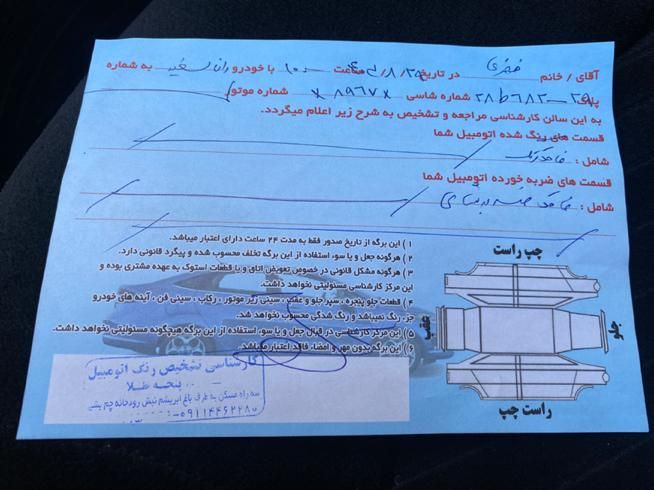 آقای / خانم در تاریخ ساعت ۱۰:۰۰ با خودرو سفید به شماره
پلاک ۲۸ط۶۸۲ شماره شاسی ۸۹۶۷ شماره موتور
به این سالن کارشناسی مراجعه و تشخیص به شرح زیر اعلام میگردد.
قسمت های رنگ شده اتومبیل شما
شامل : فاقد رنگ
قسمت های ضربه خورده اتومبیل شما
شامل : فاقد
۱ ) این برگه از تاریخ صدور فقط به مدت ۲۴ ساعت دارای اعتبار میباشد.
۲ ) هرگونه جعل و یا سوء استفاده از این برگه تخلف محسوب شده و پیگرد قانونی دارد.
۳ ) هرگونه مشکل قانونی در خصوص تعویض اتاق و یا قطعات استوک به عهده مشتری بوده و
این مرکز کارشناسی مسئولیتی نخواهد داشت.
۴ ) قطعات جلو پنجره ، سپر جلو و عقب ، سینی زیر موتور ، رکاب ، سینی فن ، آینه های خودرو
جزء رنگ نمیباشد و رنگ شدگی محسوب نخواهد شد.
۵ ) این مرکز کارشناسی در قبال جعل و یا سوء استفاده از این برگه هیچگونه مسئولیتی نخواهد داشت.
۶ ) این برگه بدون مهر و امضاء فاقد اعتبار میباشد.
چپ راست
عقب
جلو
راست چپ
کارشناسی تشخیص رنگ اتومبیل
پنجه طلا
سه راه مسکن به طرف باغ ابریشم نبش رودخانه چم بشیر